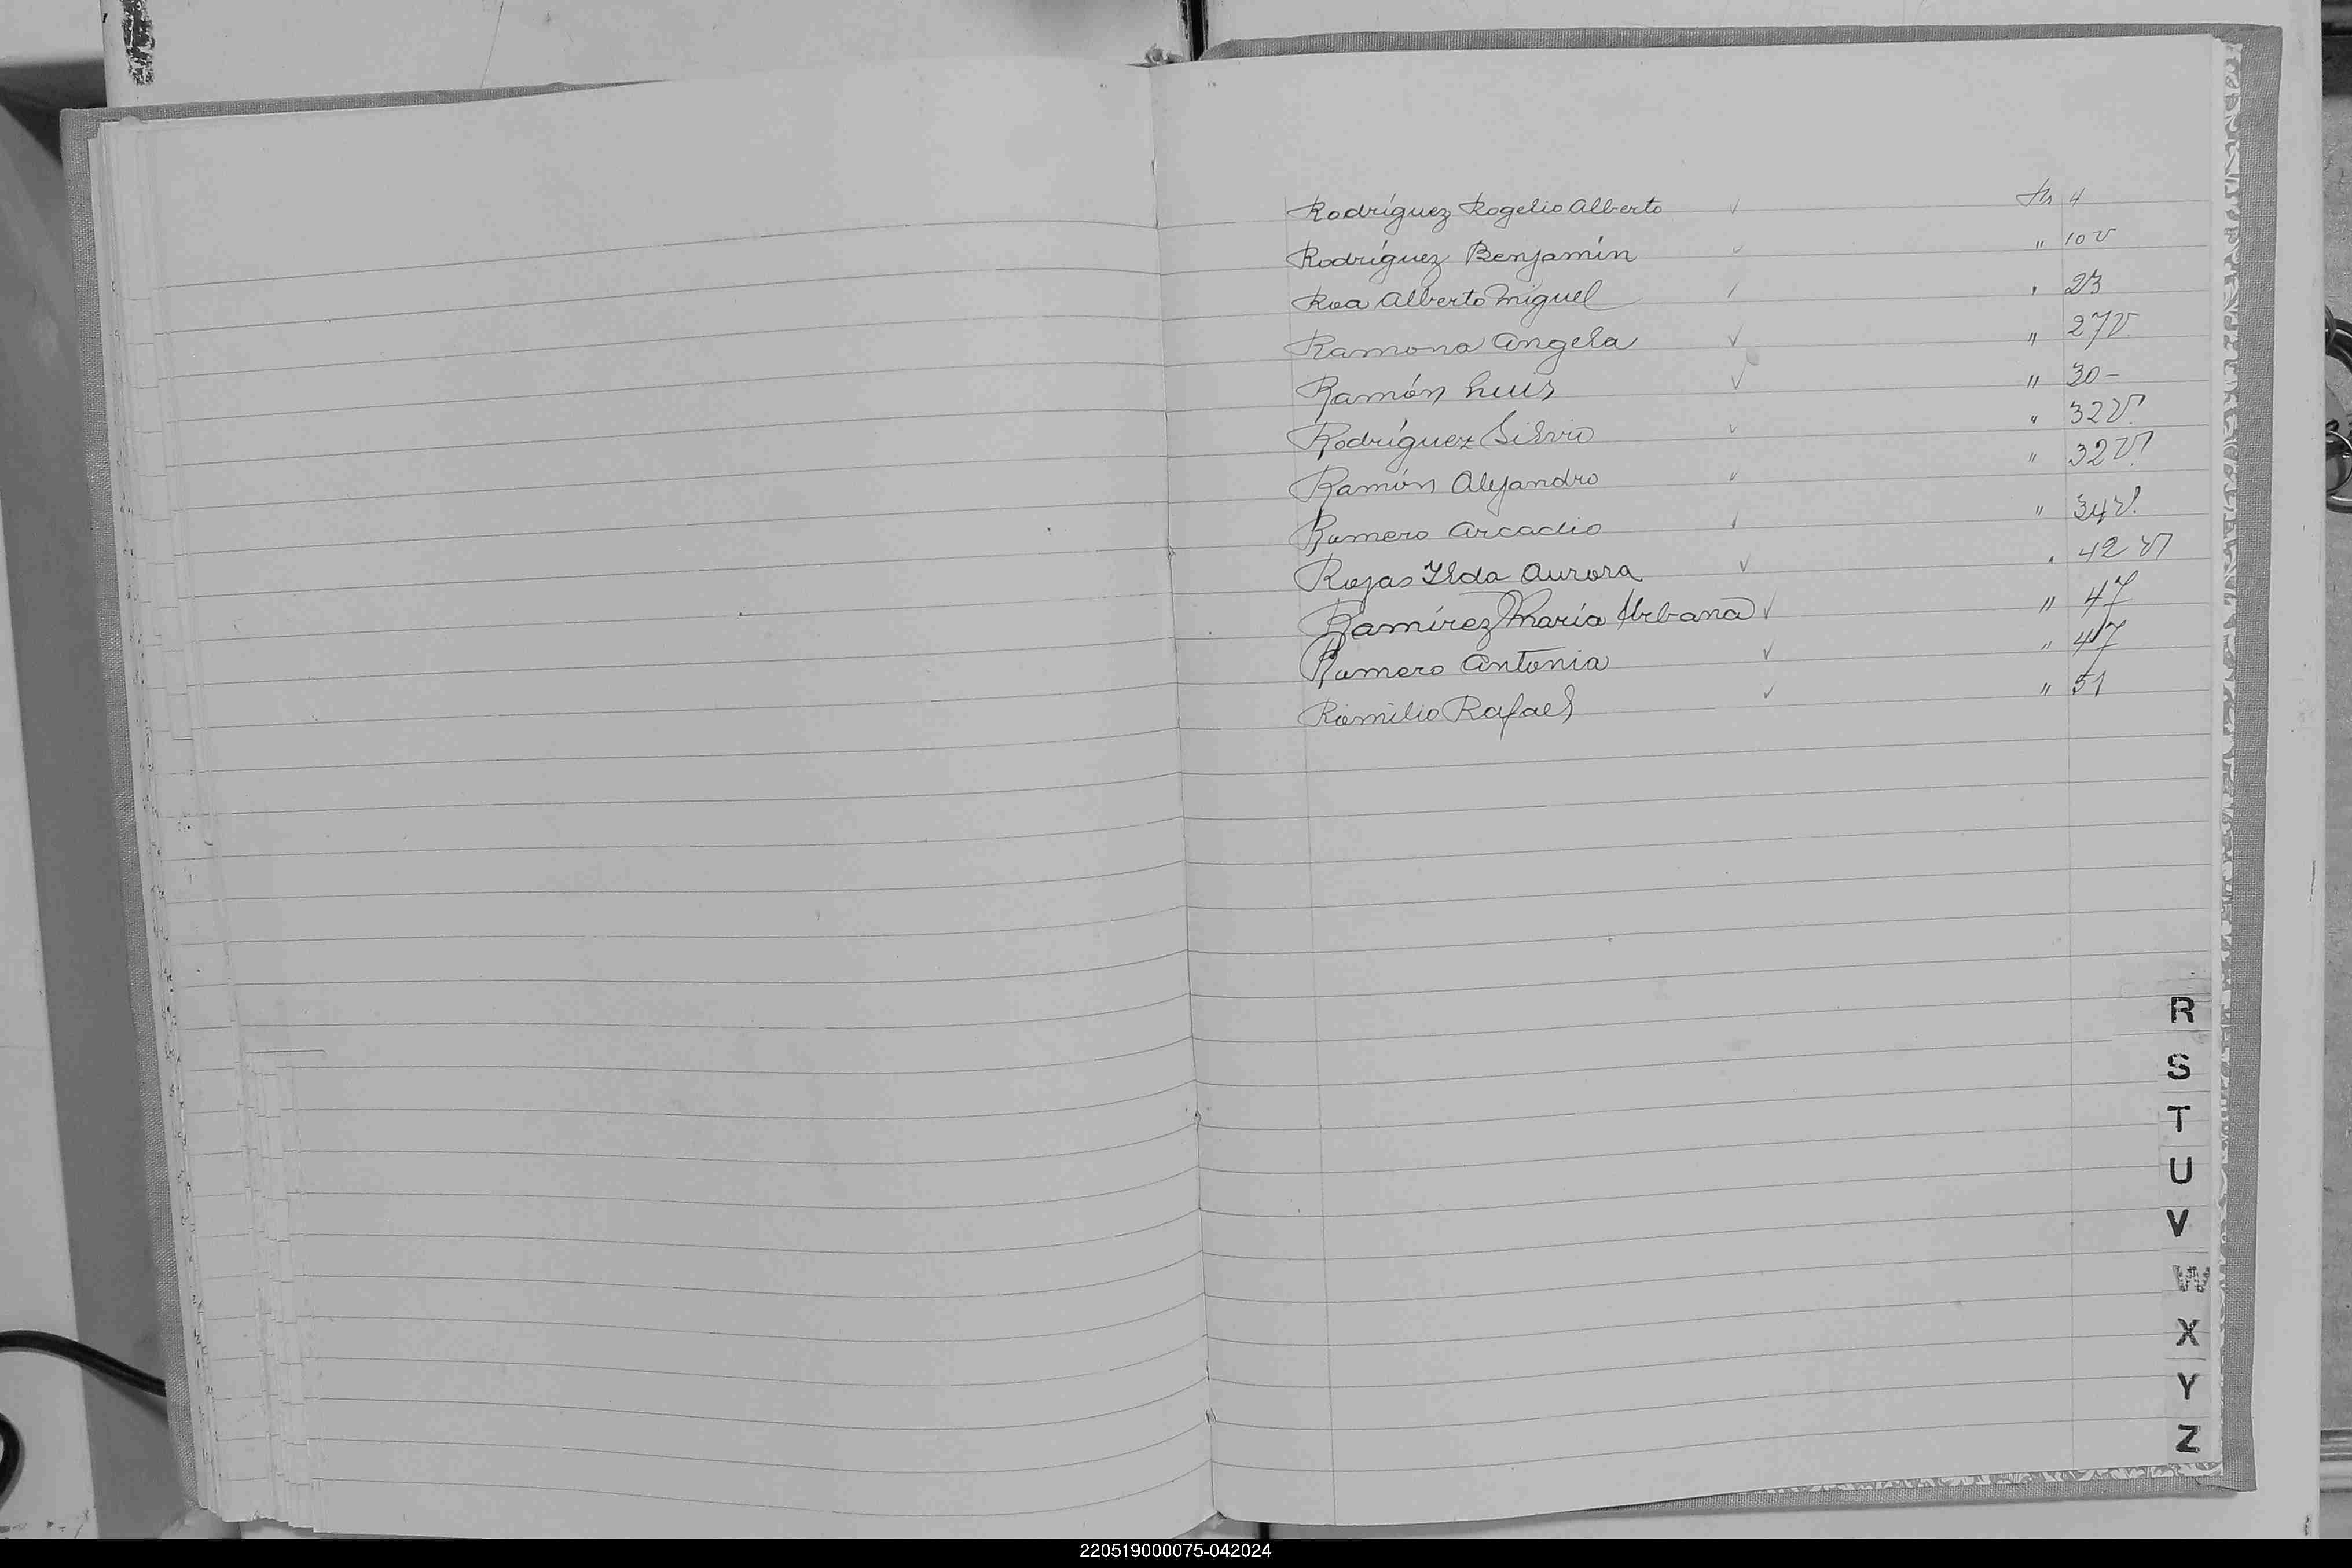 Rodríguez Rogelio Alberto ✓ fls 4
Rodríguez Benjamín ✓ " 10 v
Roa Alberto Miguel ✓ " 23
Ramona Angela ✓ " 27 v.
Ramón Luis ✓ " 30 -
Rodríguez Silvio ✓ " 32 v.
Ramón Alejandro ✓ " 32 v.
Romero Arcadio ✓ " 34 v.
Rojas Ilda Aurora ✓ " 42 v
Ramírez María Urbana ✓ " 47
Romero Antonia ✓ " 47
Romilio Rafael ✓ " 51
R
S
T
U
V
W
X
Y
Z
220519000075-042024